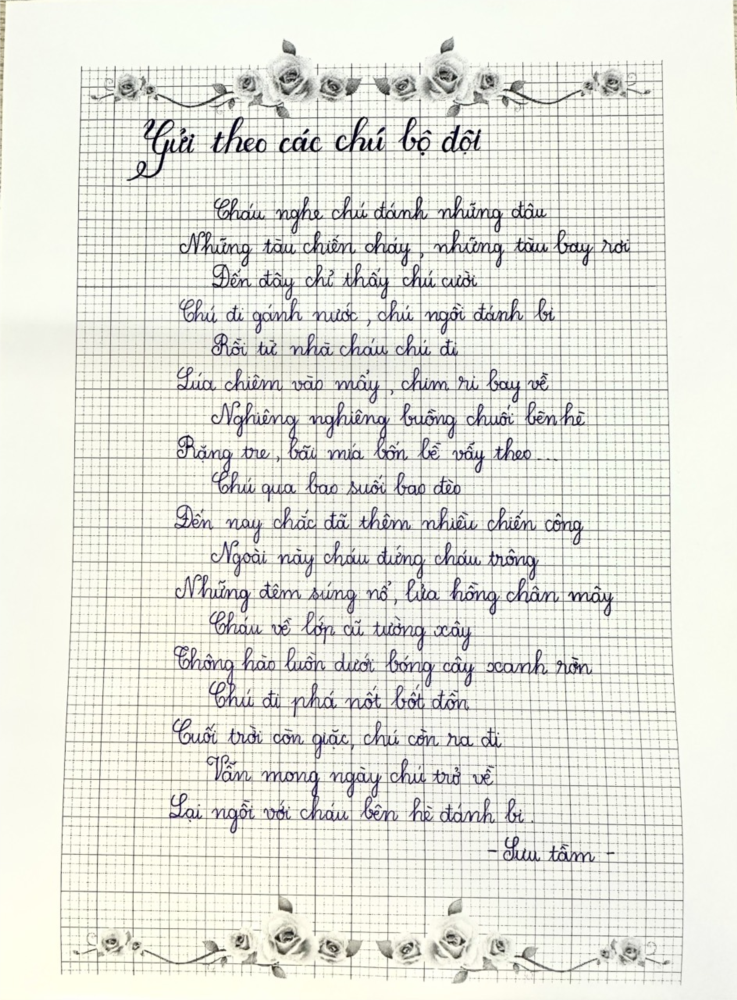 Gửi theo các chú bộ đội
Cháu nghe chú đánh những đâu
Những tàu chiến cháy, những tàu bay rơi
Đến đây chỉ thấy chú cười
Chú đi gánh nước, chú ngồi đánh bi
Rồi từ nhà cháu chú đi
Lúa chiêm vào mẩy, chim ri bay về
Nghiêng nghiêng buồng chuối bên hè
Rặng tre, bãi mía bốn bề vẫy theo...
Chú qua bao suối bao đèo
Đến nay chắc đã thêm nhiều chiến công
Ngoài này cháu đứng cháu trông
Những đêm súng nổ, lửa hồng chân mây
Cháu về lớp cũ tường xây
Thông hào luồn dưới bóng cây xanh rờn
Chú đi phá nốt bốt đồn
Cuối trời còn giặc, chú còn ra đi
Vẫn mong ngày chú trở về
Lại ngồi với cháu bên hè đánh bi.
- Sưu tầm -